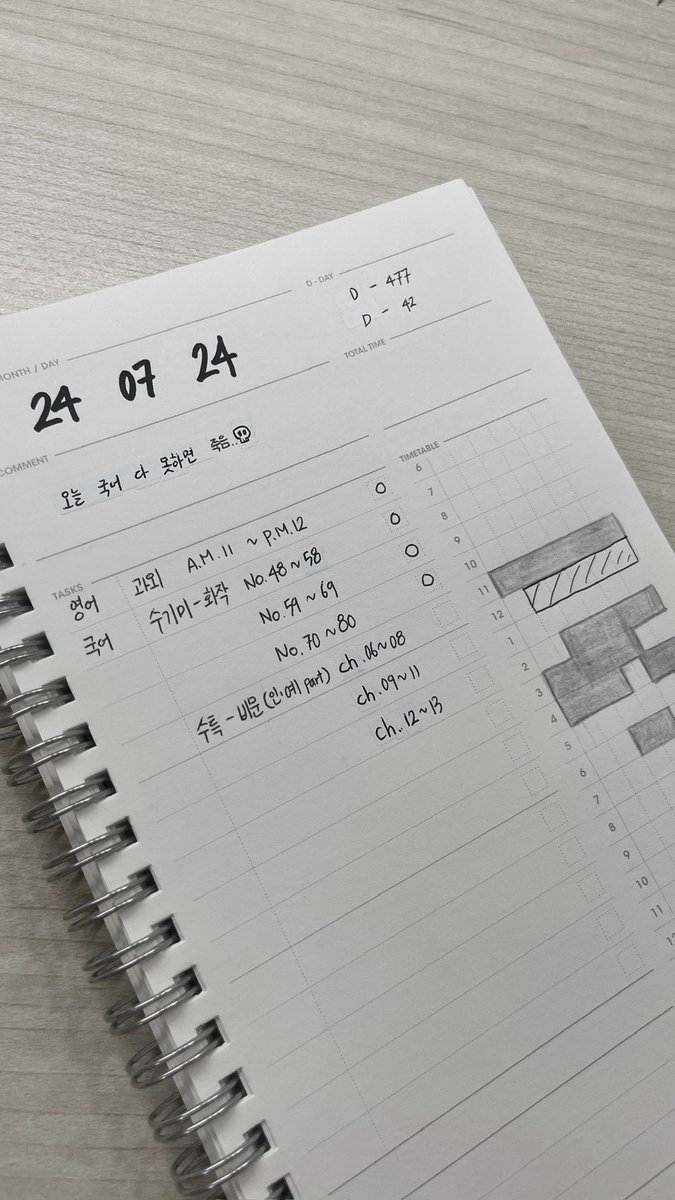 D - DAY
D - 477
D - 42
MONTH / DAY
24 07 24
TOTAL TIME
COMMENT
오늘 국어 다 못하면 죽음..
TIMETABLE
TASKS
영어 과외 A.M.11 ~ P.M.12
국어 수기미-화작 No.48~58
No.59~69
No.70~80
수특-비문(인·예 part) ch.06~08
ch.09~11
ch.12~13
6
7
8
9
10
11
12
1
2
3
4
5
6
7
8
9
10
11